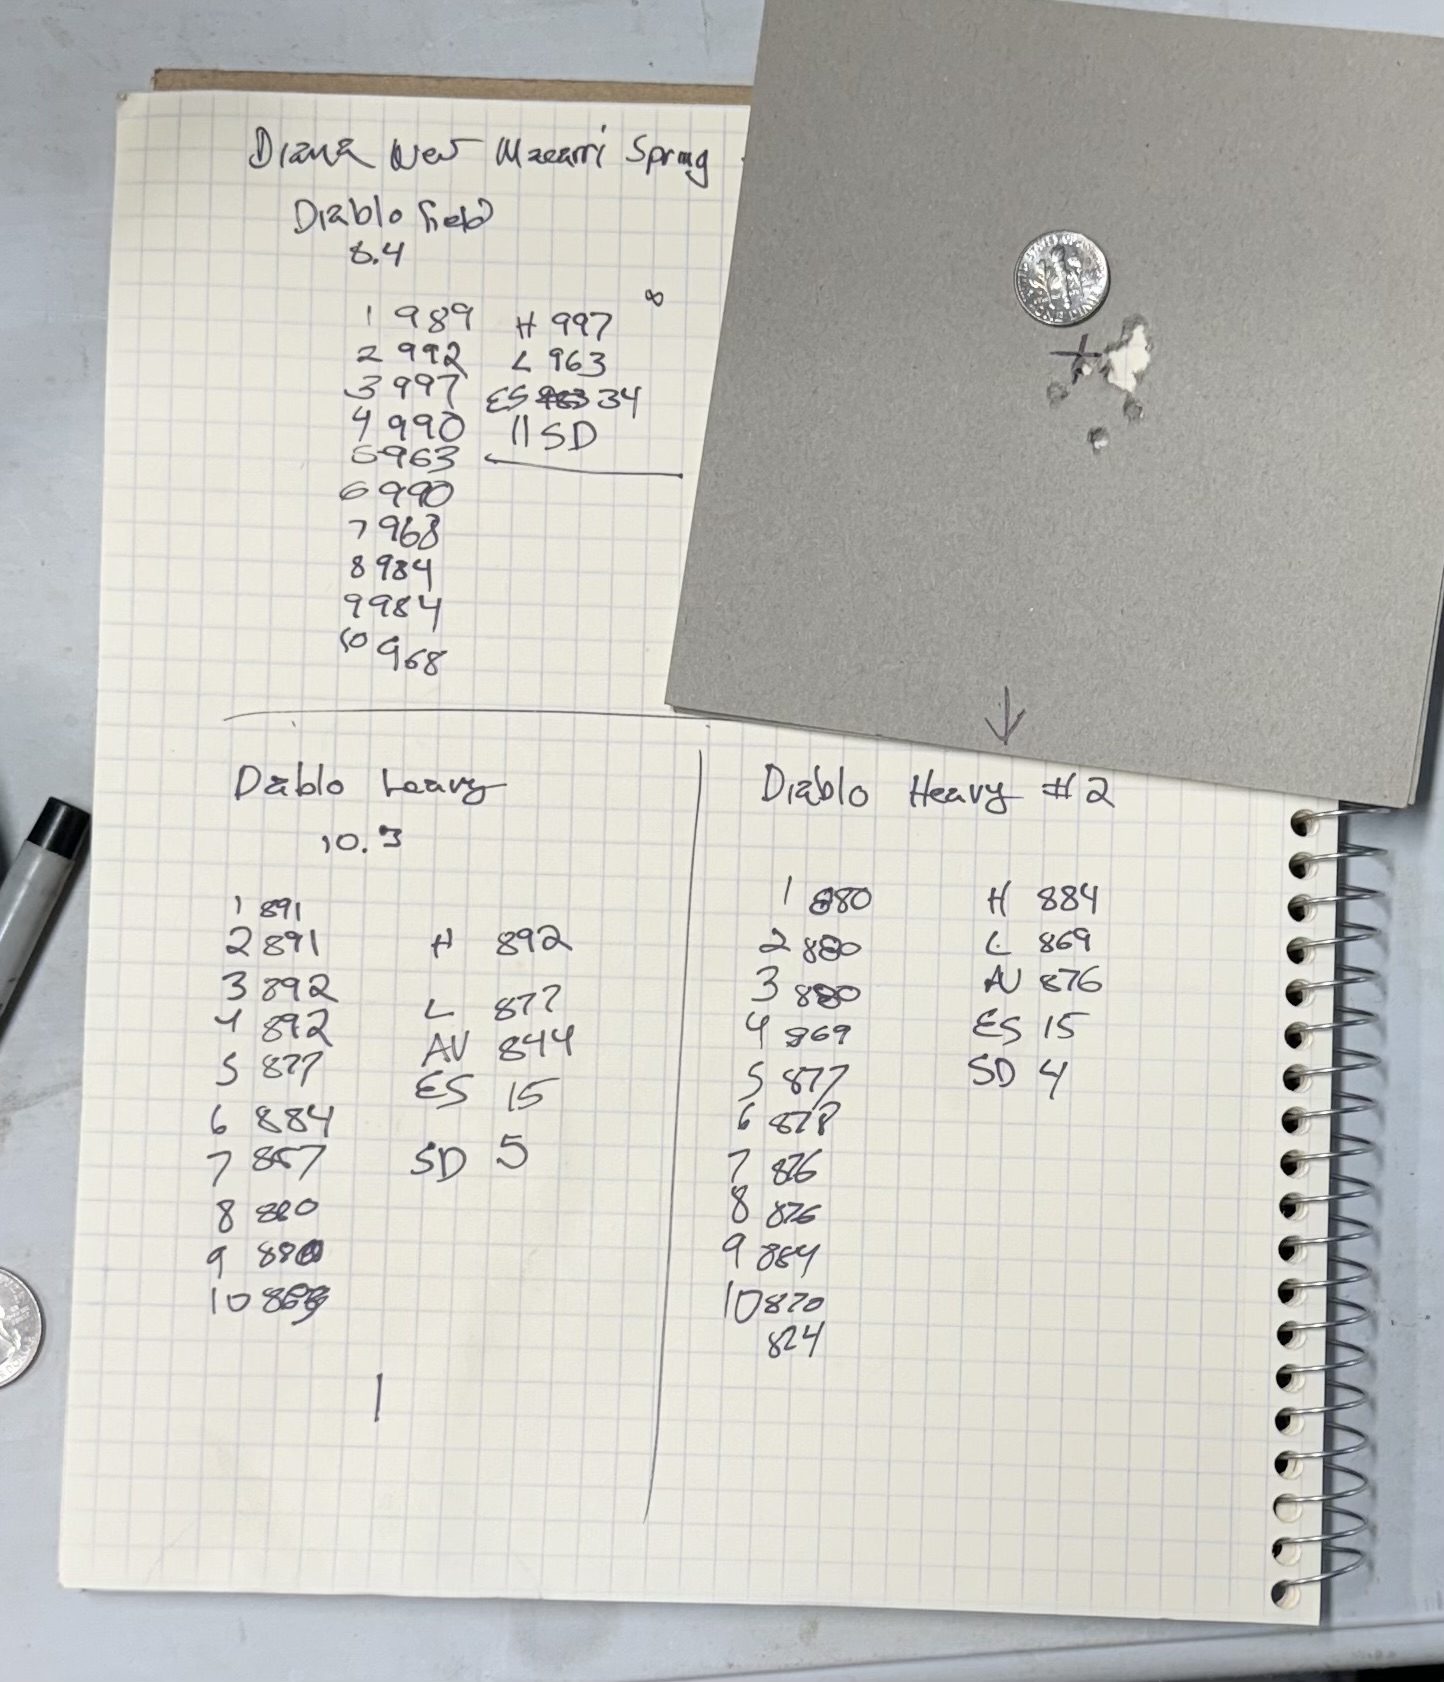 Diana New Macarri Spring
Diablo field
8.4
1 989 H 997
2 992 L 963
3 997 ES 34
4 990 11 SD
5 963
6 990
7 968
8 984
9 984
10 968
Diablo heavy
10.3
1 891
2 891 H 892
3 892 L 877
4 892 AV 844
5 877 ES 15
6 884
7 SD 5
8 880
9 880
10
Diablo Heavy #2
1 880 H 884
2 880 L 869
3 880 AV 876
4 869 ES 15
5 877 SD 4
6 878
7 876
8 876
9 884
10 870
824
ONE DIME